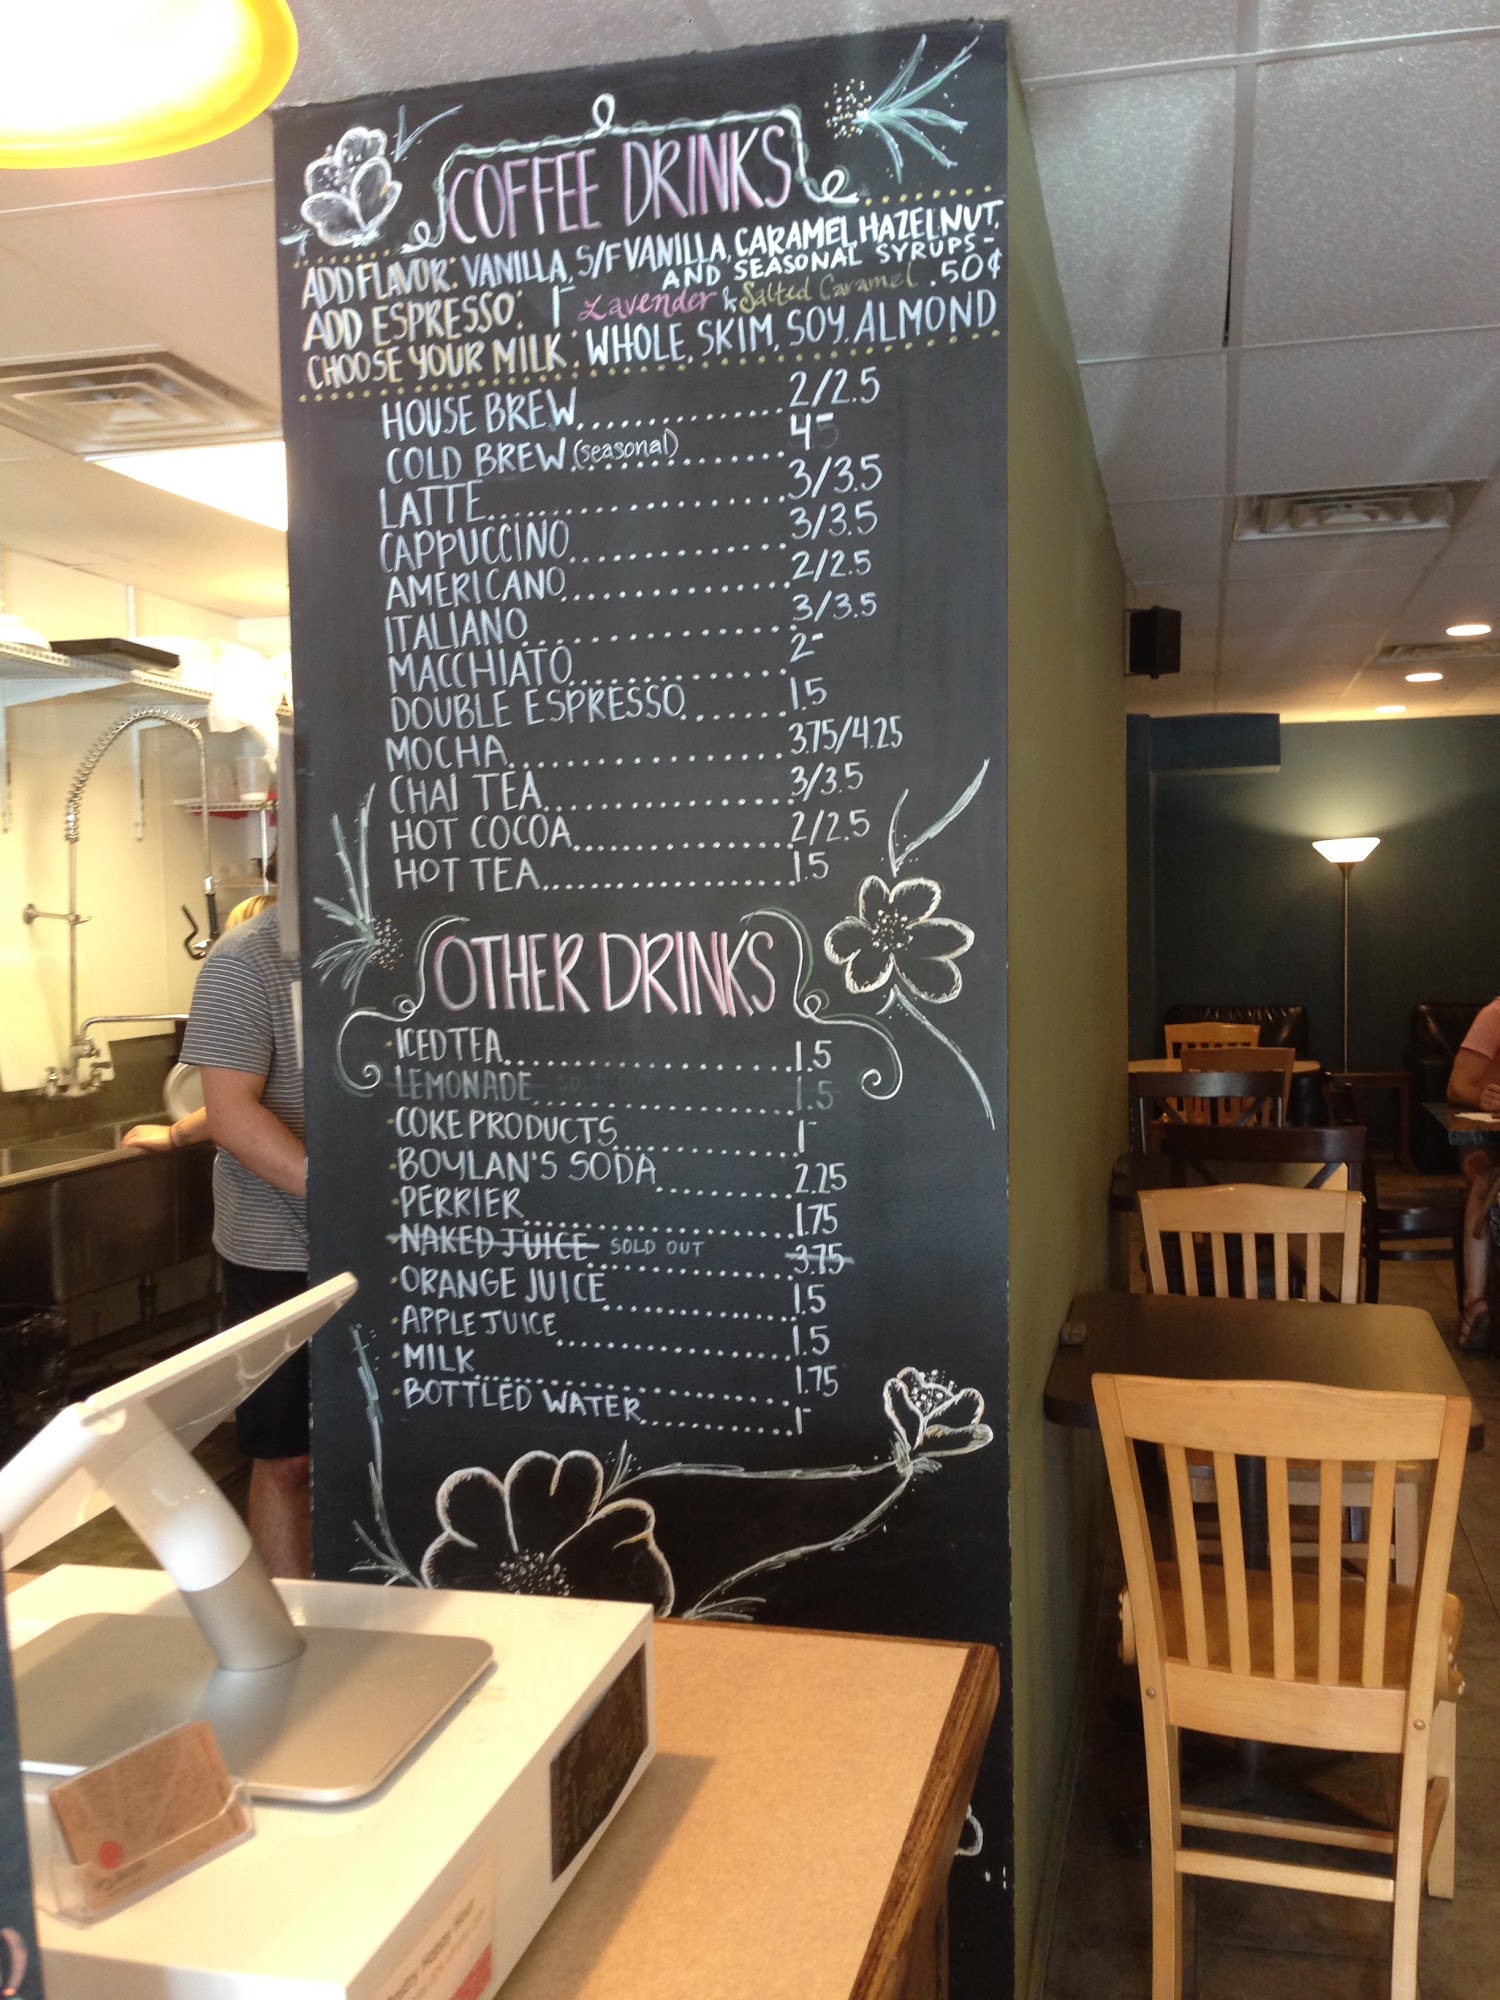 COFFEE DRINKS
ADD FLAVOR: VANILLA, S/F VANILLA, CARAMEL, HAZELNUT,
AND SEASONAL SYRUPS -
Lavender & Salted Caramel .50¢
ADD ESPRESSO: 1-
CHOOSE YOUR MILK: WHOLE, SKIM, SOY, ALMOND
HOUSE BREW 2/2.5
COLD BREW (seasonal) 4
LATTE 3/3.5
CAPPUCCINO 3/3.5
AMERICANO 2/2.5
ITALIANO 3/3.5
MACCHIATO 2-
DOUBLE ESPRESSO 1.5
MOCHA 3.75/4.25
CHAI TEA 3/3.5
HOT COCOA 2/2.5
HOT TEA 1.5
OTHER DRINKS
ICED TEA 1.5
LEMONADE 1.5
COKE PRODUCTS 1-
BOYLAN'S SODA 2.25
PERRIER 1.75
NAKED JUICE SOLD OUT 3.75
ORANGE JUICE 1.5
APPLE JUICE 1.5
MILK 1.75
BOTTLED WATER 1-